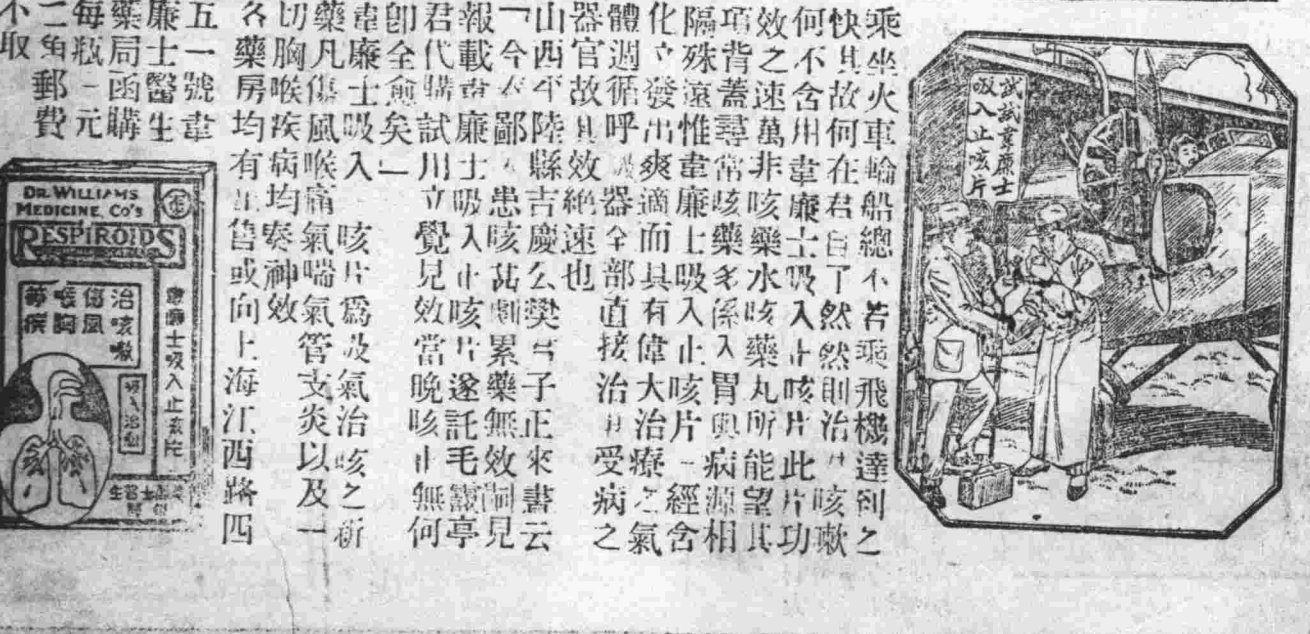 試試韋廉士
吸入止咳片
乘坐火車輪船總不若乘飛機達到之
快其故何在君自了然然則治咳嗽
何不含用韋廉士吸入止咳片此片功
效之速萬非咳藥水咳藥丸所能望其
項背蓋尋常咳藥多係入胃與病源相
隔殊遠惟韋廉士吸入止咳片一經含
化立發出爽適而具有偉大治療之氣
體週循呼吸器全部直接治受病之
器官故其效絕速也
山西平陸縣吉慶公樊子正來書云
「今春鄙人患咳甚劇累藥無效嗣見
報載韋廉士吸入止咳片遂託毛靈亭
君代購試用立覺見效當晚咳止無何
卽全愈矣」
韋廉士吸入止咳片爲吸氣治咳之新
藥凡傷風喉痛氣喘氣管支炎以及一
切胸喉疾病均奏神效
各藥房均有出售或向上海江西路四
五一號韋
廉士醫生
藥局函購
每瓶一元
二角郵費
不取
DR. WILLIAMS
MEDICINE CO'S
RESPIROIDS
韋廉士吸入止咳片
治咳嗽
傷風
喉胸
等疾